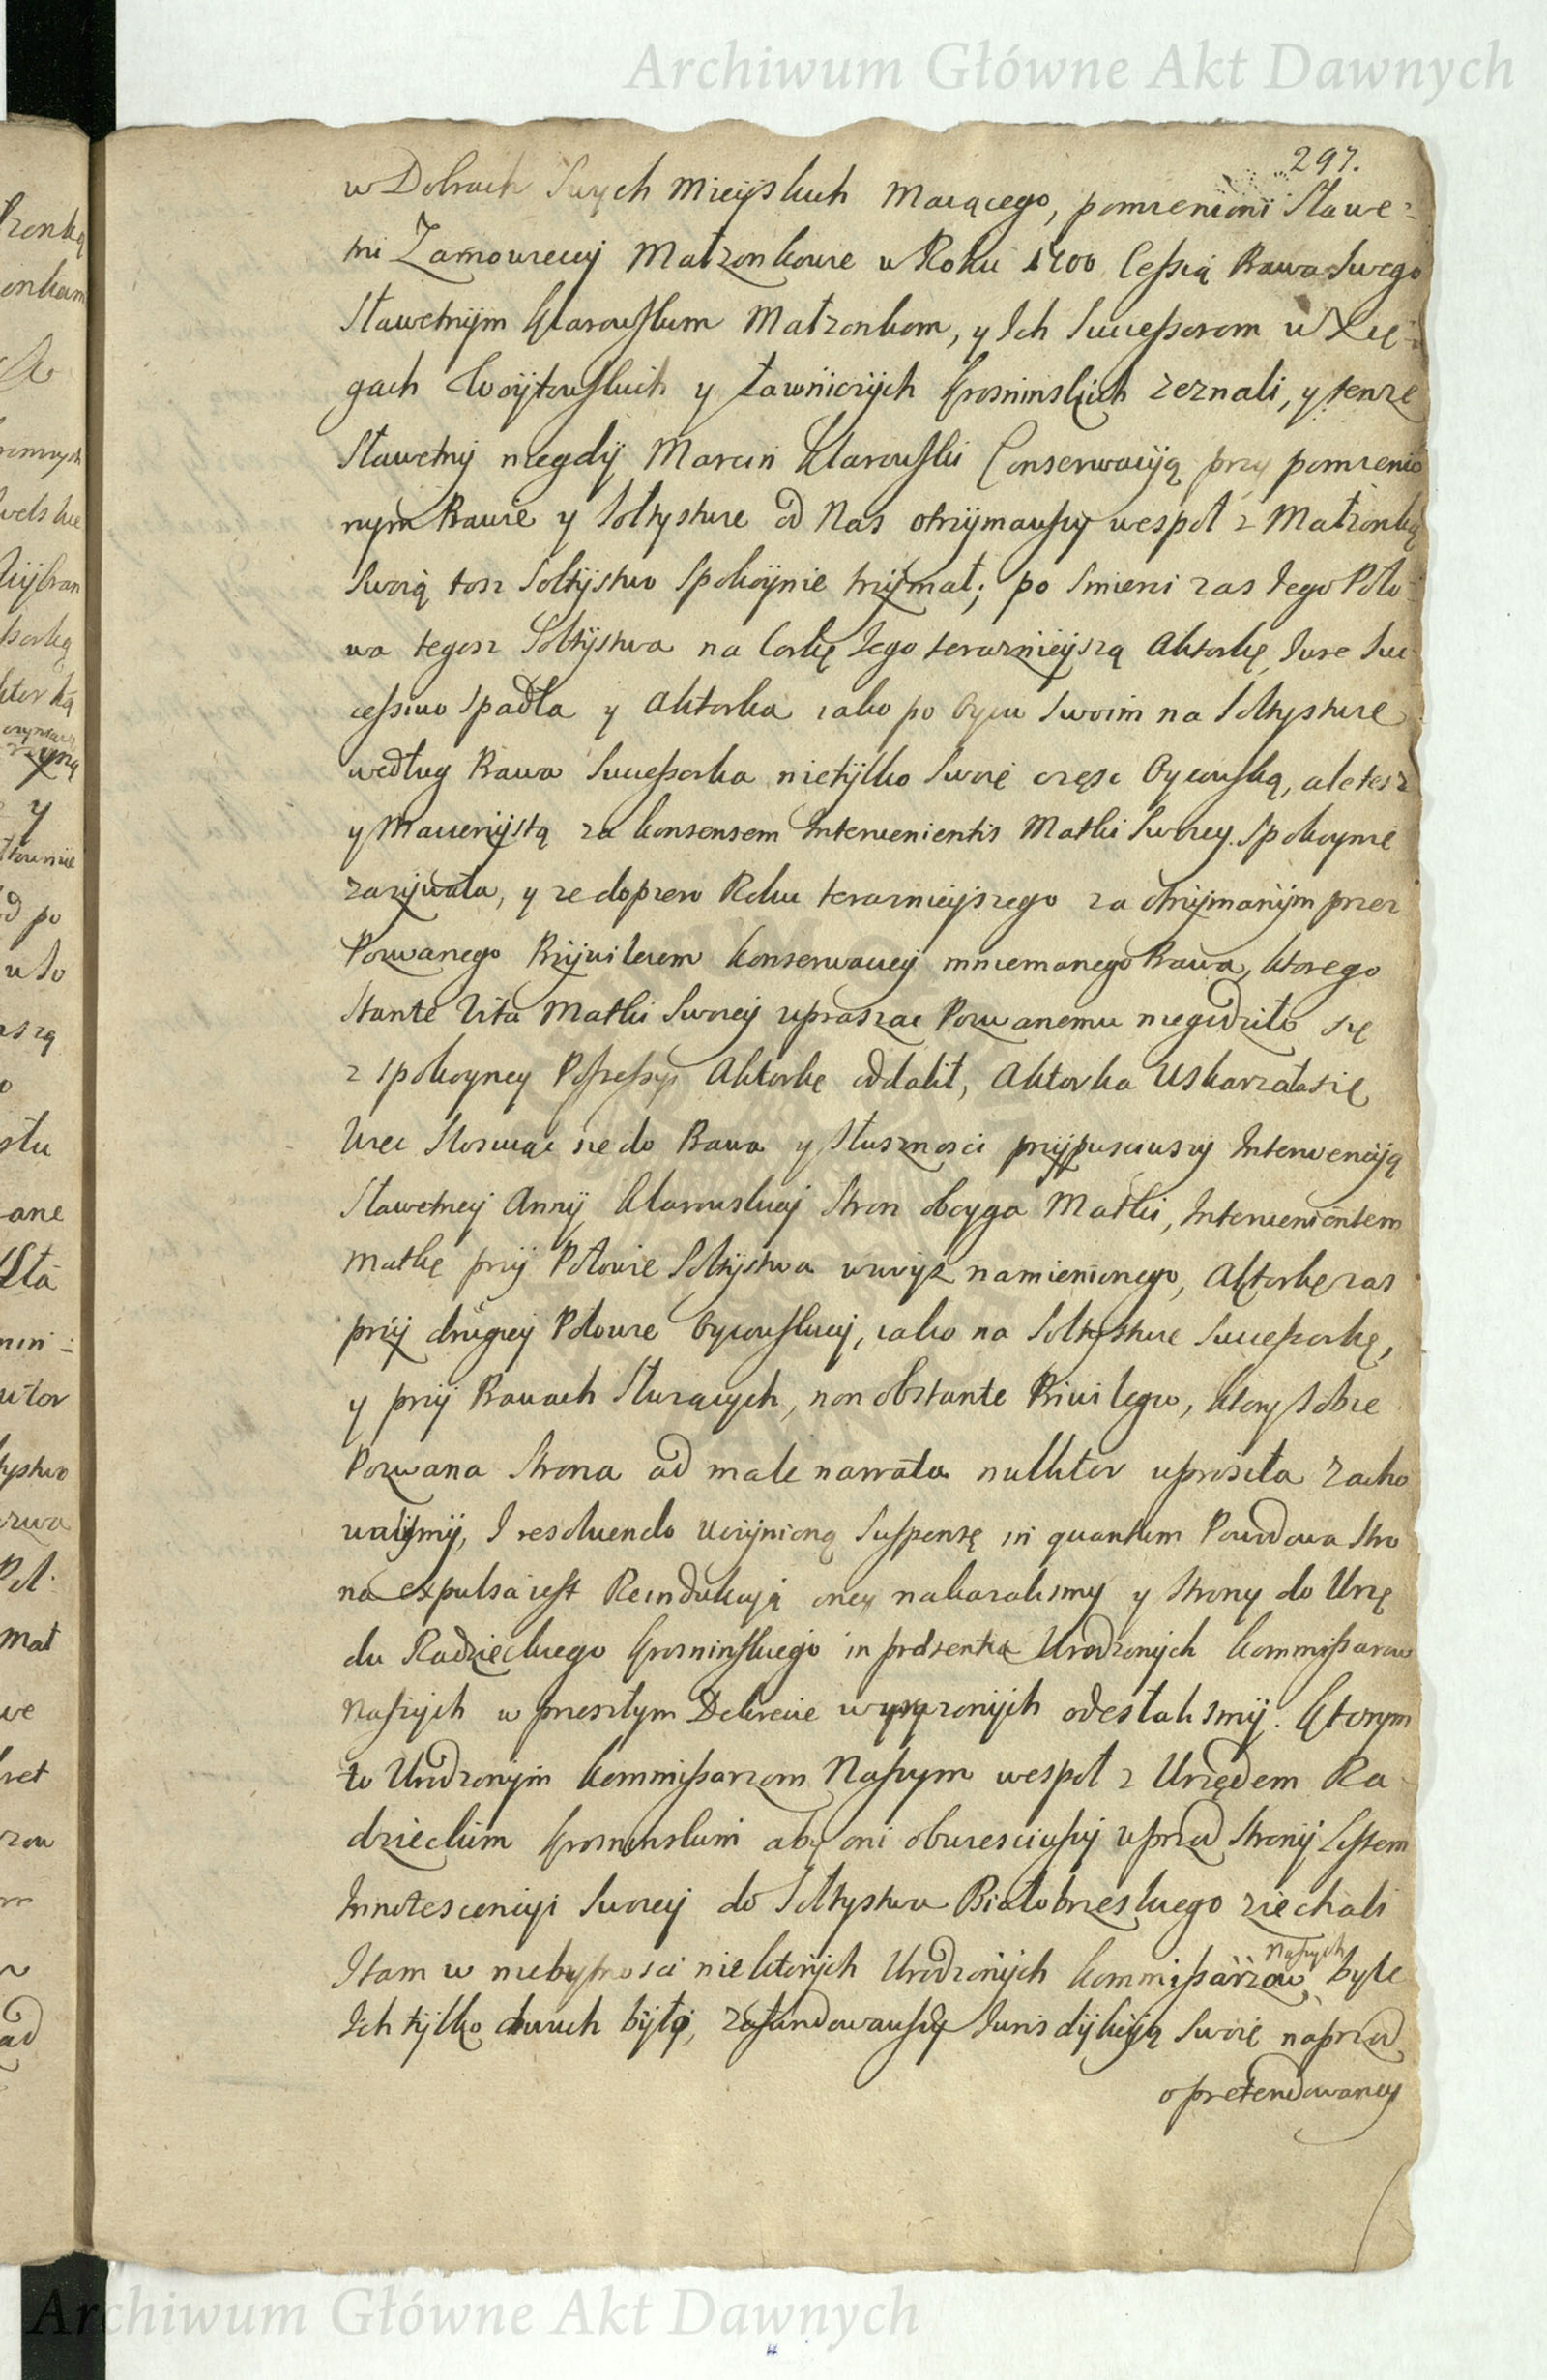 Archiwum Główne Akt Dawnych
297.
w Dobrach Swych Mieyskich Maiącego, pomienioni Sławe=
tni Zamoyscy Małzonkowie w Roku 1700 Cessią Prawa Swego
Sławetnym Klarowskim Małzonkom, y Ich Successorom w Xię=
gach Woytowskich y Ławniczych Krosninskich zeznali, y tenze
Sławetny niegdy Marcin Klarowski Conserwacyją przy pomienio
nym Prawie y Sołtystwie od Nas otrzymawszy wespoł z Małzonką
Swoią tosz Sołtystwo Spokoynie trzymał; po Smierci zas Jego Poło=
wa tegosz Sołtystwa na Corkę Jego terazniejszą Aktorkę Jure Suc
cessiuo Spadła y Aktorka iako po Oycu Swoim na Sołtystwie
według Prawa Successorka nietylko Swoię częsc Oycowską, ale tesz
y Macierzystą za konsensem Interuenientis Matki Swoiey Spokoynie
zazywała, y ze dopiero Roku terazniejszego za otrzymanym przez
Pozwanego Przywileiem konserwacyi mniemanego Prawa, ktorego
Stante Vita Matki Swoiey upraszac Pozwanemu niegodziło się
z spokoyney Possessyi Aktorkę oddalił, Aktorka Uskarzałasię
Więc Stosuiąc sie do Prawa y Słusznosci przypusciwszy Interwencyją
Sławetney Anny Klarowskiey Stron oboyga Matki, Interuenientem
Matkę przy Połowie Sołtystwa wwysz namienionego, Aktorkę zas
przy drugiey Połowie Oycowskiey, iako na Sołtystwie Successorkę,
y przy Prawach Słuzących, non obstante Priuilegio, ktory Sobie
Pozwana Strona ad male narrata nulliter uprosiła zacho
walismy, I resoluendo uczynioną Suspensę in quantum Powodowa Stro
na expulsa iest Reindukcyją oney nakazalismy y Strony do Urzę
du Radzieckiego Krosninskiego in præsentia Urodzonych Kommissarzow
Naszych w przeszłym Dekrecie wyrazonych odesłalismy. Ktorym
to Urodzonym Kommissarzom Naszym wespoł z Urzędem Ra=
dzieckim Krosninskim aby oni obwiesciwszy uprzod Strony Listem
Innotescencyi Swoiey do Sołtystwa Białobrzeskiego ziechali
I tam w niebytnosci niektorych Urodzonych Kommissarzow Naszych byle
Ich tylko dwuch było, zafundowawszy Jurisdykcyją Swoię naprzod
o pretendowaney
Archiwum Główne Akt Dawnych